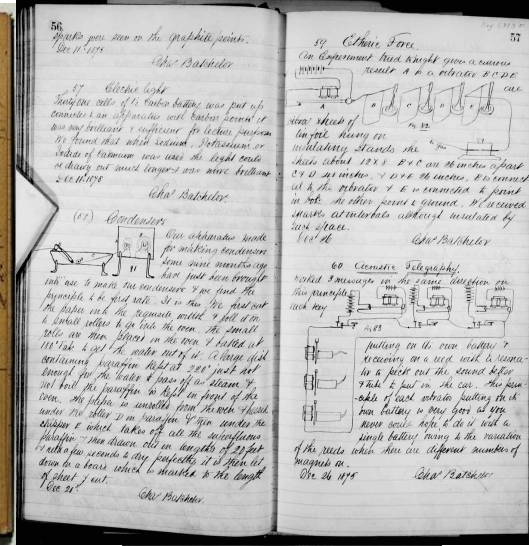 56
sparks were seen on the graphite points.
Dec 11th 1875
Chas Batchelor
57 Electric light
Thirty one cells of carbon battery was put up
connected to an apparatus with carbon points it
was very brilliant & sufficient for lecture purposes
We found that when sodium, Potassium or
Iodide of cadmium was used the light could
be drawn out much longer & was more brilliant
Dec 11 1875
Chas. Batchelor.
(58) Condensers
Our apparatus made
for making condensers
some nine months ago
had just been brought
into use to make our condenser & we find the
principle to be first rate. It is this We first cut
the paper into the requisite width & roll it on
to small rollers to go into the oven. The small
rolls are then placed in the oven & baked at
to get the water out of it. A large dish
containing paraffin kept at just hot
enough for the water to pass off as steam &
not boil the paraffin is kept in front of the
oven. The paper is unrolled from the oven & passed
under the roller D in paraffin & then under the
scraper E which takes off all the superfluous
paraffin & then drawn out in lengths of 20 feet
& in a few seconds to dry perfectly it is then let
down to a board which is marked to the length
of sheet & cut.
Dec 21
Chas Batchelor.
57
59 Etheric Force.
An Experiment tried tonight gives a curious
result A is a vibrator B C D E
are
A
B
C
D
E
Fig 82
sheets of
tin foil hung on
insulating stands the
sheets about 12 x 8 B & C are 26 inches apart
C & D 48 inches & D & E 26 inches. B is connect-
ed to the vibrator & E is connected to point
in box the other point to ground. We received
sparks at intervals although insulated by
such space.
Dec 26
Chas Batchelor
60 Acoustic Telegraphy.
Worked 3 messages in the same direction on
this principle
each key
Fig 83
putting on its own battery &
receiving on a reed with a resona-
tor to pick out the sound after
& tube to put in the ear. This prin-
ciple of each vibrator putting on its
own battery is very good as you
never could hope to do it with a
single battery owing to the variation
of the reeds when there are different numbers of
magnets on.
Dec 26 1875
Chas Batchelor